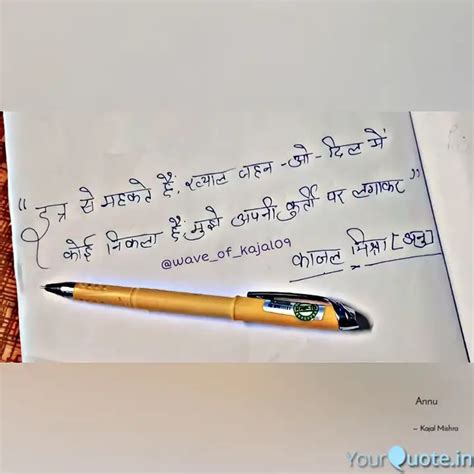 “इत्र से महकते हैं, ख्याल जहन -ओ- दिल में
कोई निकला है, मुझे अपनी कुर्ती पर लगाकर”
@wave_of_kajal09
काजल मिश्रा [अनु]
Annu
– Kajal Mishra
YourQuote.in